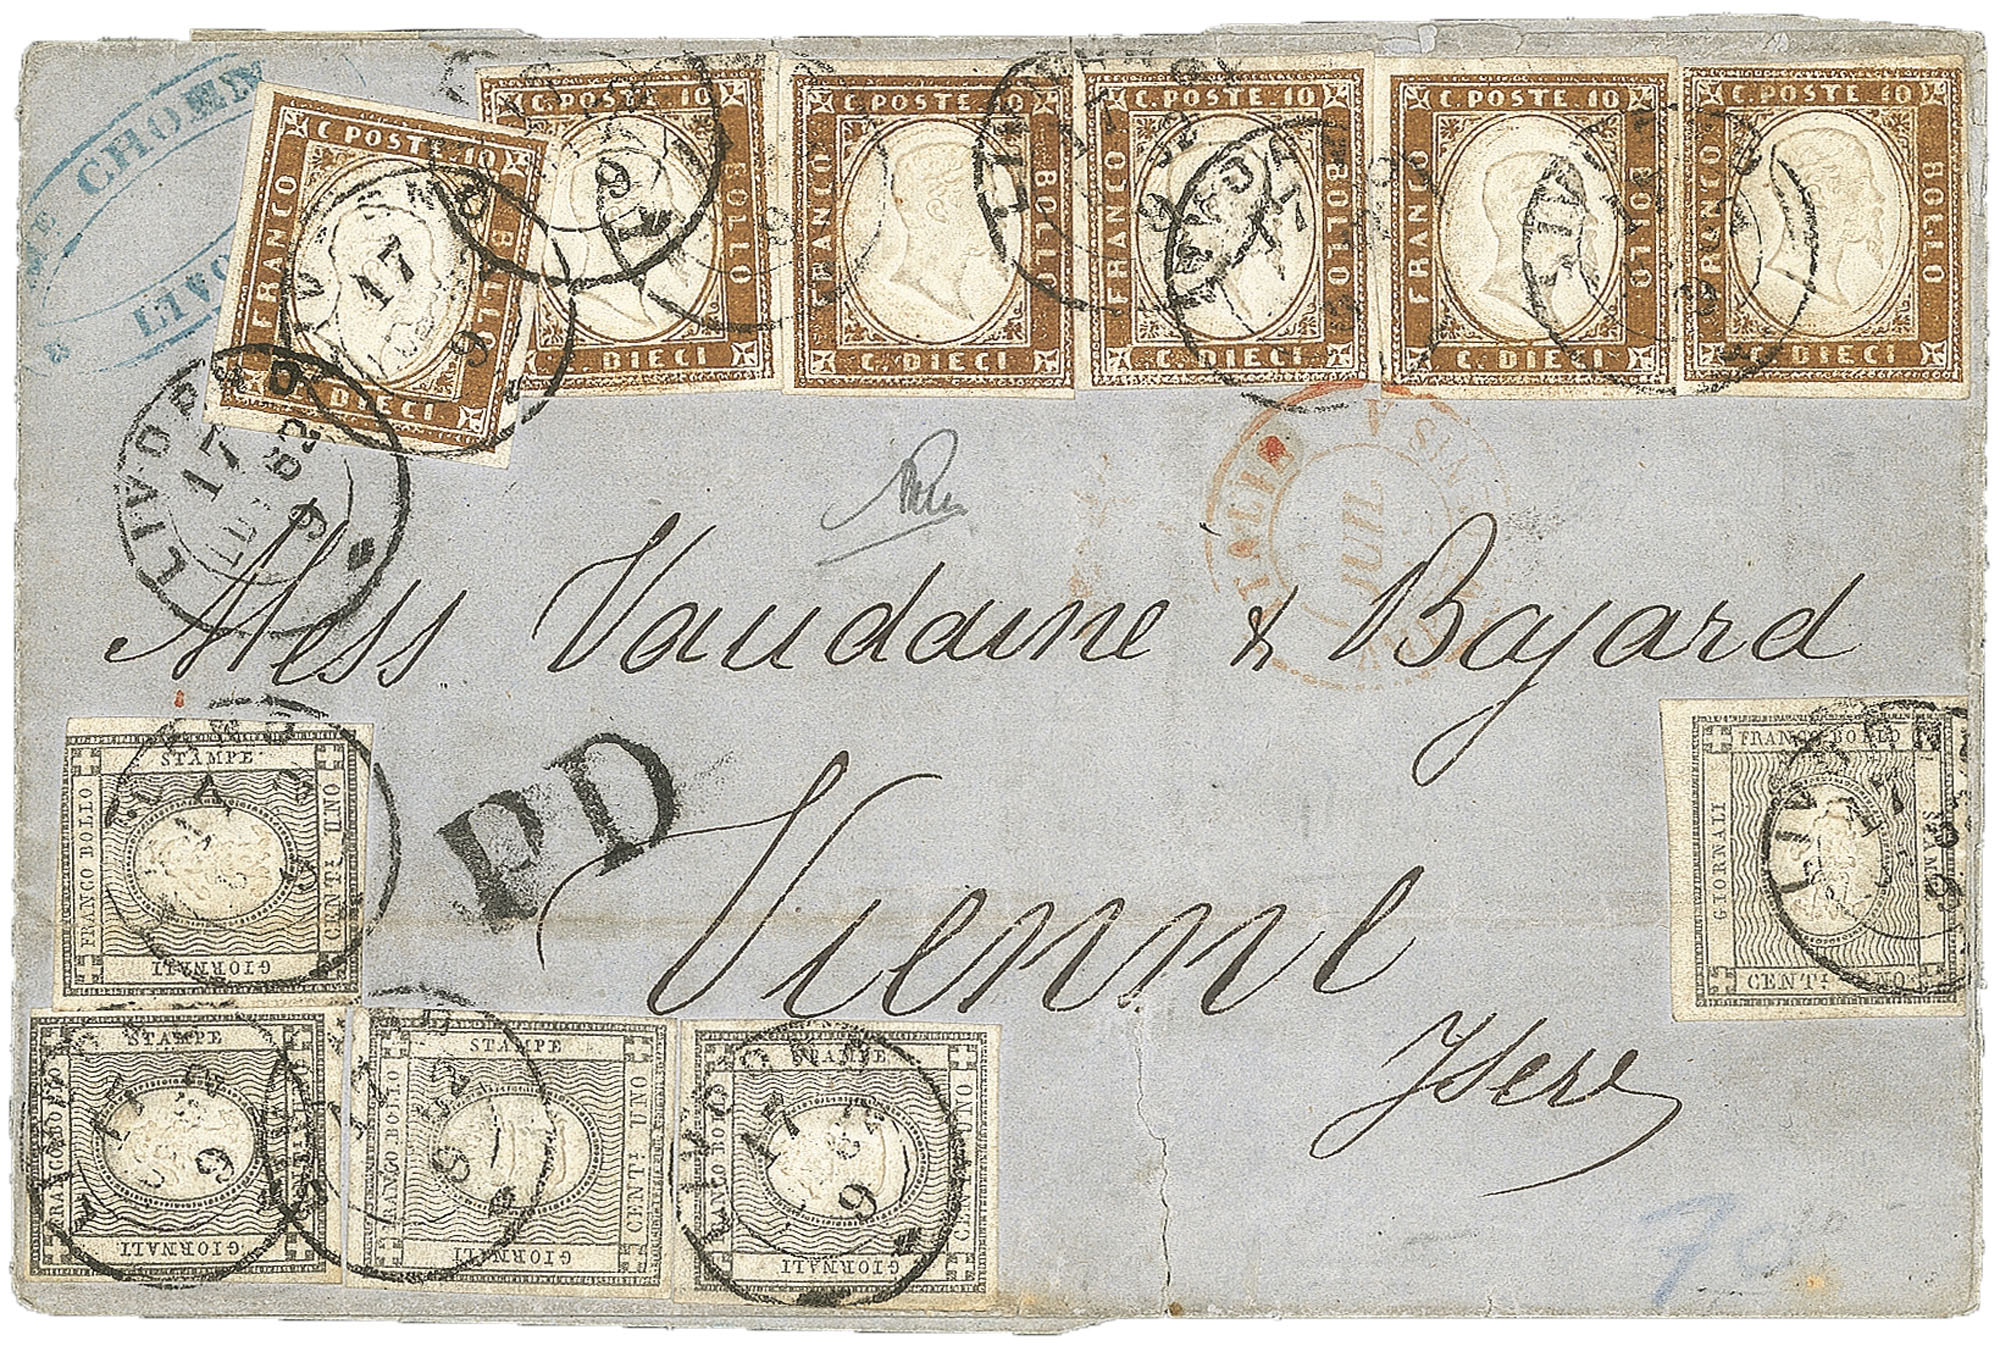 C. POSTE. 10
FRANCO
BOLLO
C. DIECI
C. POSTE. 10
BOLLO
C. DIECI
C. POSTE. 10
FRANCO
BOLLO
C. DIECI
C. POSTE. 10
FRANCO
BOLLO
C. DIECI
C. POSTE. 10
FRANCO
BOLLO
C. DIECI
C. POSTE 10
FRANCO
BOLLO
C. DIECI
CHOMEY
LIVO
17
LIVORNO
17
LUG
63
9
ITALIE
JUIL
Mess Vaudaine & Bajard
PD
Vienne
Isere
STAMPE
FRANCO BOLLO
CENT: UNO
GIORNALI
FRANCO BOLLO
GIORNALI
STAMPE
CENT: UNO
STAMPE
FRANCO BOLLO
GIORNALI
17
9
STAMPE
FRANCO BOLLO
CENT: UNO
GIORNALI
STAMPE
FRANCO BOLLO
CENT: UNO
GIORNALI
LIVORNO
17
9